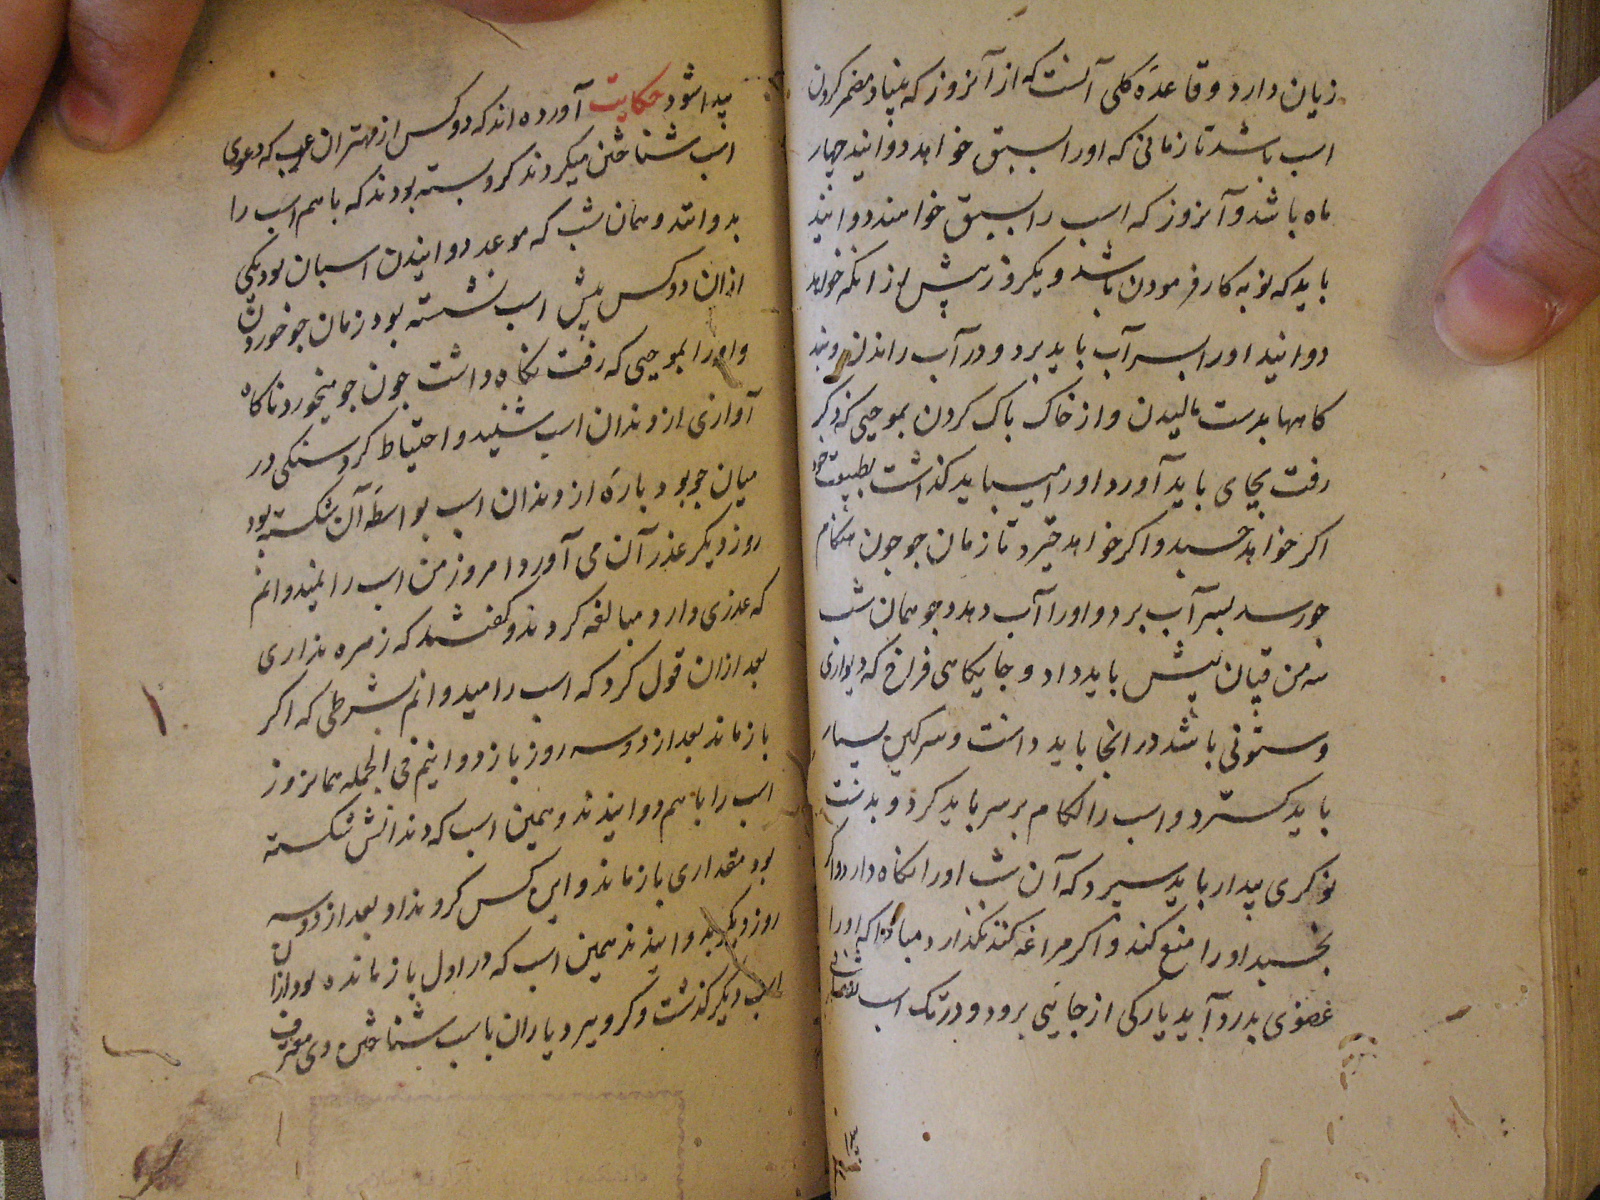 زیان دارد و قاعدهٔ کلی آنست که از آنروز که بنیاد مضمر کردن
اسب باشد تا زمانی که او را بسبق خواهد دوانید چهار
ماه باشد و آنروز که اسب را بسبق خواهند دوانید
باید که نوبه کار فرمودن باشد و یکروز پیش از انکه خواهد
دوانید او را بسر آب باید برد و در آب راندن و بند
کامها بدست مالیدن و از خاک باک کردن بموجبی که ذکر
رفت بجای باید آورد و او را میباید کذاشت بطبیعت خود
اکر خواهد خسبد و اکر خواهد خیزد تا زمان جو جون هنکام
جو رسد بسر آب برد و او را آب دهد و جو همان شب
نه من قپان پیش باید داد و جایکاهی فراخ که دیواری
و ستونی باشد در انجا باید داشت و سرکین بسیار
باید کسترد و اسب را لکام بر سر باید کرد و بدست
نوکری بیدار باید سپرد که آن شب او را نکاه دارد و اکر
بخسبد او را منع کند و اکر مراغه کند نکذارد مبادا که او را
عضوی بدرد آید یا رکی از جایی برود و در تک اسب نقصانی
پیدا شود حکایت آورده اند که دو کس از مهتران عرب که دعوی
اسب شناختن میکردند کرو بسته بودند که با هم اسب را
بدوانند و همان شب که موعد دوانیدن اسبان بود یکی
ازان دو کس پیش اسب نشسته بود زمان جو خوردن
و او را بموجبی که رفت نکاه داشت جون جو میخورد ناکاه
آوازی از دندان اسب شنید و احتیاط کرد سنکی در
میان جو بود و بارهٔ از دندان اسب بواسطهٔ آن شکسته بود
روز دیکر عذر آن می آورد امروز من اسب را نمیدوانم
که عذری دارد مبالغه کردند و کفتند که زهره نداری
بعد ازان قول کرد که اسب را میدوانم بشرطی که اکر
بازماند بعد از دو سه روز باز دوانیم فی الجمله همانروز
اسب را با هم دوانیدند و همین اسب که دندانش شکسته
بود مقداری بازماند و این کس کرو نداد و بعد از دو سه
روز دیکر بدوانیدند همین اسب که در اول بازمانده بود ازان
اسب دیکر کذشت و کرو ببرد و یاران باسب شناختن وی معترف